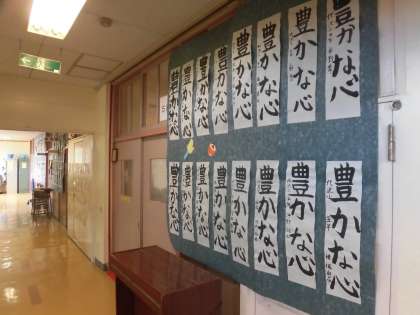 豊かな心
豊かな心
豊かな心
豊かな心
豊かな心
豊かな心
豊かな心
豊かな心
豊かな心
豊かな心
豊かな心
豊かな心
豊かな心
豊かな心